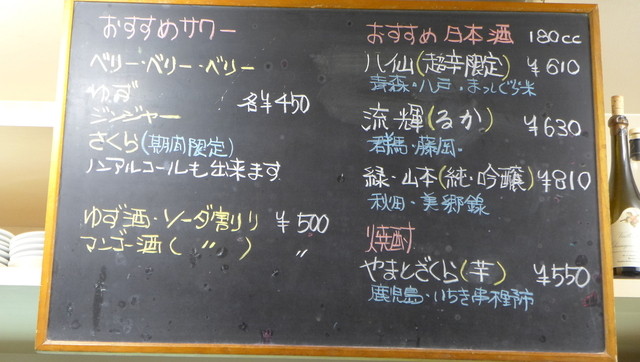 おすすめサワー
ベリー・ベリー・ベリー
ゆず
各¥450
ジンジャー
さくら(期間限定)
ノンアルコールも出来ます
ゆず酒・ソーダ割り ¥500
マンゴー酒( 〃 ) 〃
おすすめ日本酒 180cc
八仙(超辛限定) ¥610
青森・八戸・まっしぐら米
流輝(るか) ¥630
群馬・藤岡
緑・山本(純・吟醸) ¥810
秋田・美郷錦
焼酎
やまとざくら(芋) ¥550
鹿児島・いちき串木野市